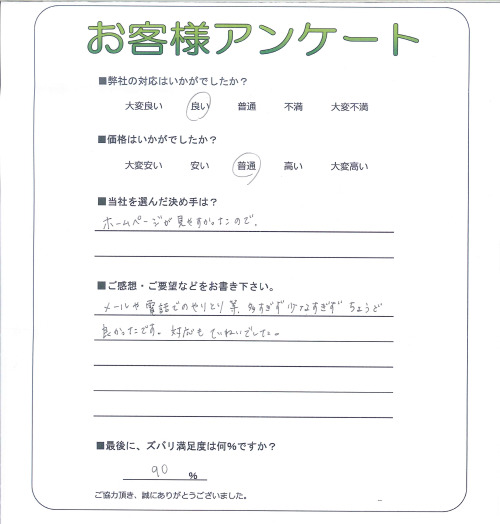 お客様アンケート
■弊社の対応はいかがでしたか?
大変良い 良い 普通 不満 大変不満
■価格はいかがでしたか?
大変安い 安い 普通 高い 大変高い
■当社を選んだ決め手は?
ホームページが見やすかったので。
■ご感想・ご要望などをお書き下さい。
メールや電話でのやりとり等、多すぎず少なすぎず ちょうど
良かったです。対応もていねいでした。
■最後に、ズバリ満足度は何%ですか?
90 %
ご協力頂き、誠にありがとうございました。